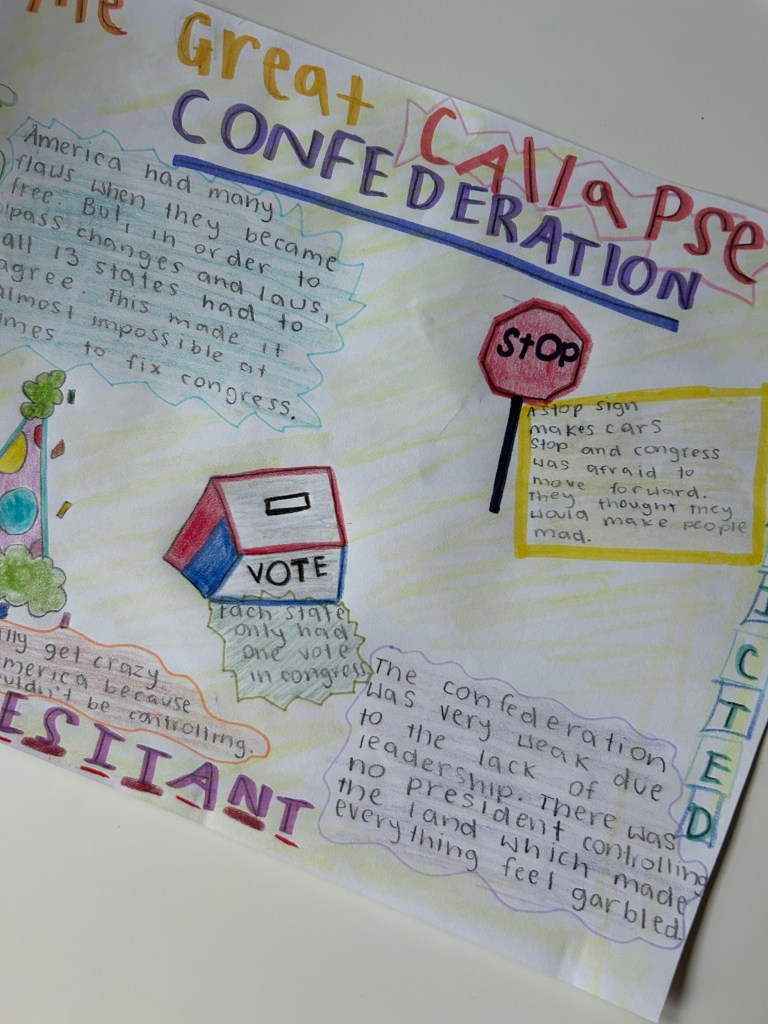 The Great Callapse
CONFEDERATION
America had many
flaws when they became
free. But, in order to
pass changes and laws,
all 13 states had to
agree. This made it
almost impossible at
times to fix congress.
STOP
A stop sign
makes cars
stop and congress
was afraid to
move forward.
They thought they
would make people
mad.
VOTE
Each state
only had
one vote
in congress
get crazy
america because
be controlling.
ESITANT
The confederation
was very weak due
to the lack of
leadership. There was
no president controlling
the land which made
everything feel garbled.
ICTED